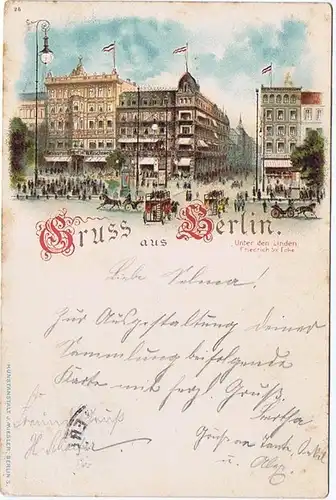 26
Gruss aus Berlin.
Unter den Linden
Friedrich Str. Ecke
Liebe Selma!
Zur Ausgestaltung deiner
Sammlung beifolgende
Karte mit herzl. Gruß.
Bertha
Grüße an Tante, Onkel
u.
KUNSTANSTALT J. MIESLER, BERLIN S.